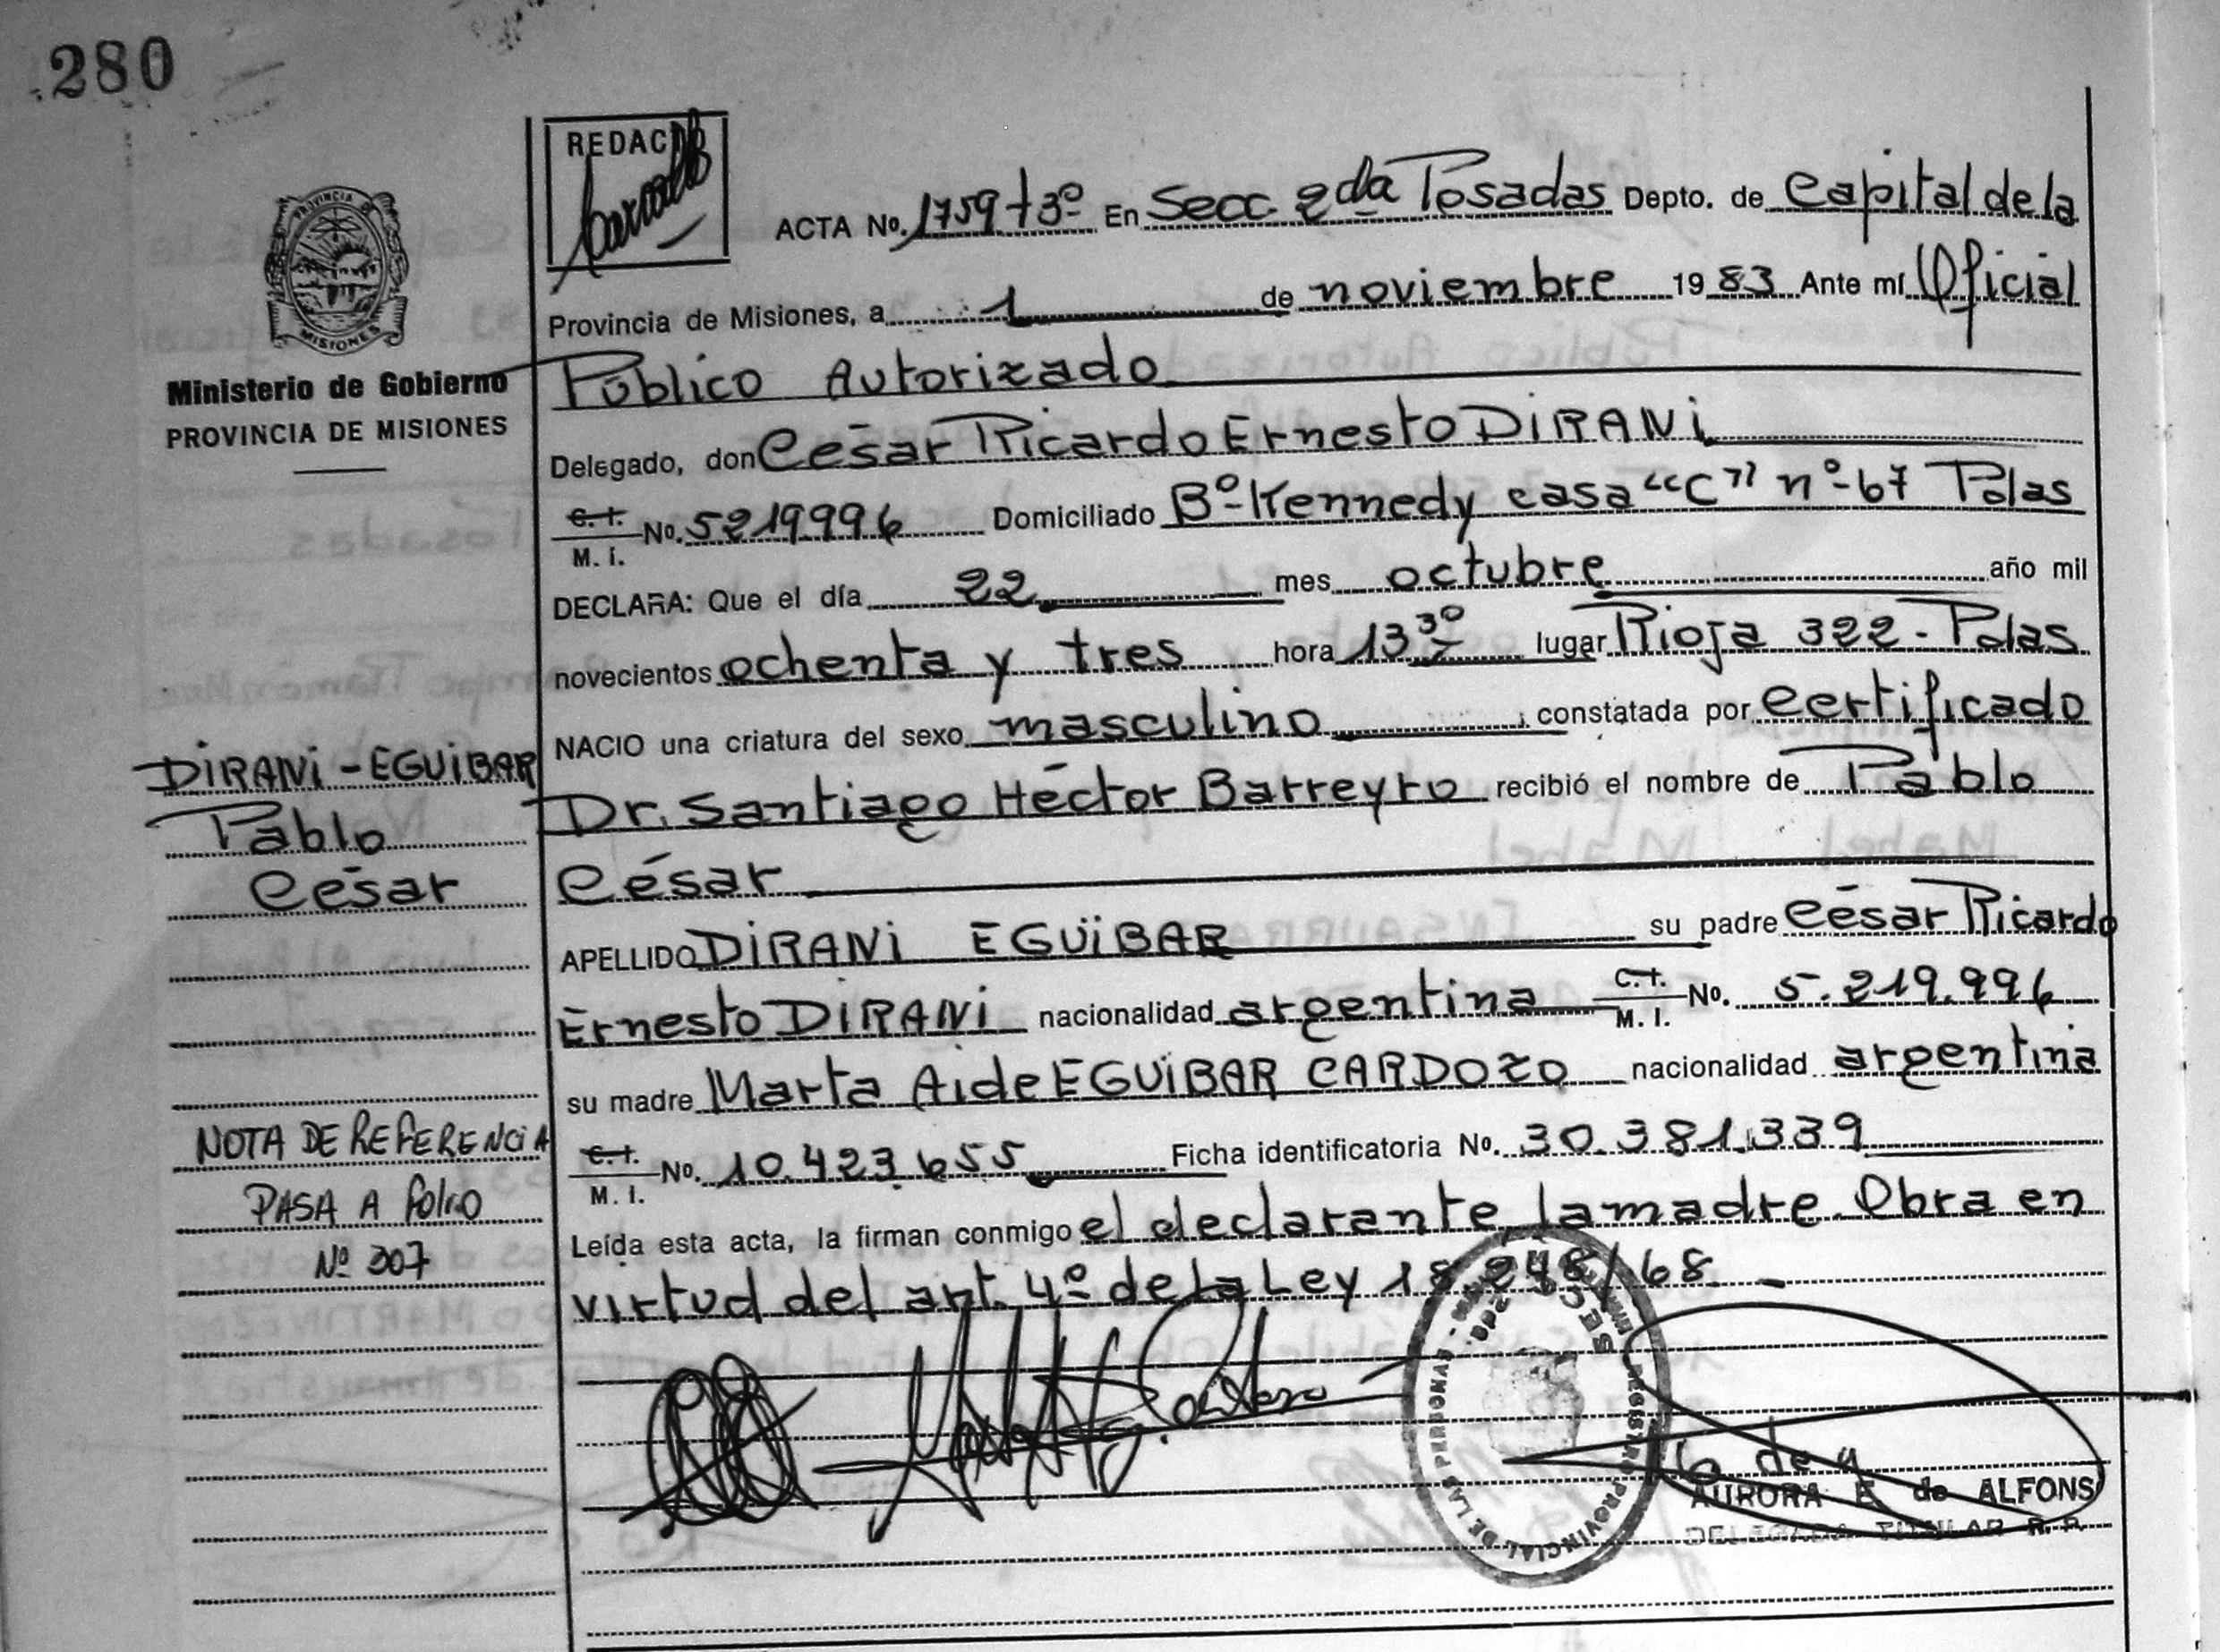 280
REDAC
ACTA No. 1759 t 3º En Secc. 2da Posadas Depto. de Capital de la
Provincia de Misiones, a 1 de noviembre 1983 Ante mí Oficial
Público Autorizado
Delegado, don César Ricardo Ernesto DIRANI
C.I. M.I. No. 5219996 Domiciliado Bº Kennedy casa "C" nº 67 Pdas
DECLARA: Que el día 22 mes octubre año mil
novecientos ochenta y tres hora 13 30 lugar Rioja 322 - Pdas
NACIO una criatura del sexo masculino constatada por certificado
Dr. Santiago Héctor Barreyro recibió el nombre de Pablo
César
APELLIDO DIRANI EGUIBAR su padre César Ricardo
Ernesto DIRANI nacionalidad argentina C.I. M.I. No. 5.219.996
su madre Marta Aide EGUIBAR CARDOZO nacionalidad argentina
C.I. M.I. No. 10.423.655 Ficha identificatoria No. 30.381.339
Leída esta acta, la firman conmigo el declarante, la madre. Obra en
virtud del art. 4º de la Ley 18.248/68
PROVINCIA DE
MISIONES
Ministerio de Gobierno
PROVINCIA DE MISIONES
DIRANI - EGUIBAR
Pablo
César
NOTA DE REFERENCIA
PASA A FOLIO
Nº 307
REGISTRO PROVINCIAL DE LAS PERSONAS
AURORA E. de ALFONS
DELEGADA TITULAR R. P.